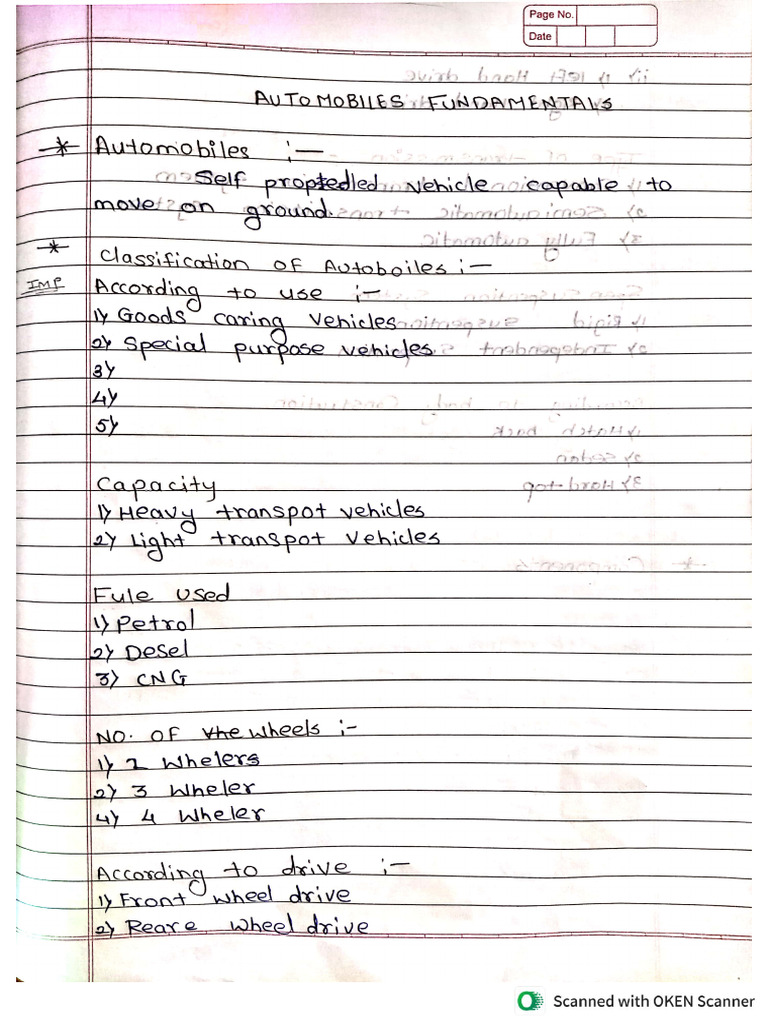 Page No.
Date
AUTOMOBILES FUNDAMENTALS
* Automobiles :-
Self propelled vehicle capable to
move on ground.
* Classification of Autoboiles :-
IMP According to use :-
1) Goods caring vehicles
2) Special purpose vehicles
3)
4)
5)
Capacity
1) Heavy transpot vehicles
2) Light transpot vehicles
Fule used
1) Petrol
2) Desel
3) CNG
No. of the wheels :-
1) 2 Whelers
2) 3 Wheler
4) 4 Wheler
According to drive :-
1) Front wheel drive
2) Reare wheel drive
Scanned with OKEN Scanner